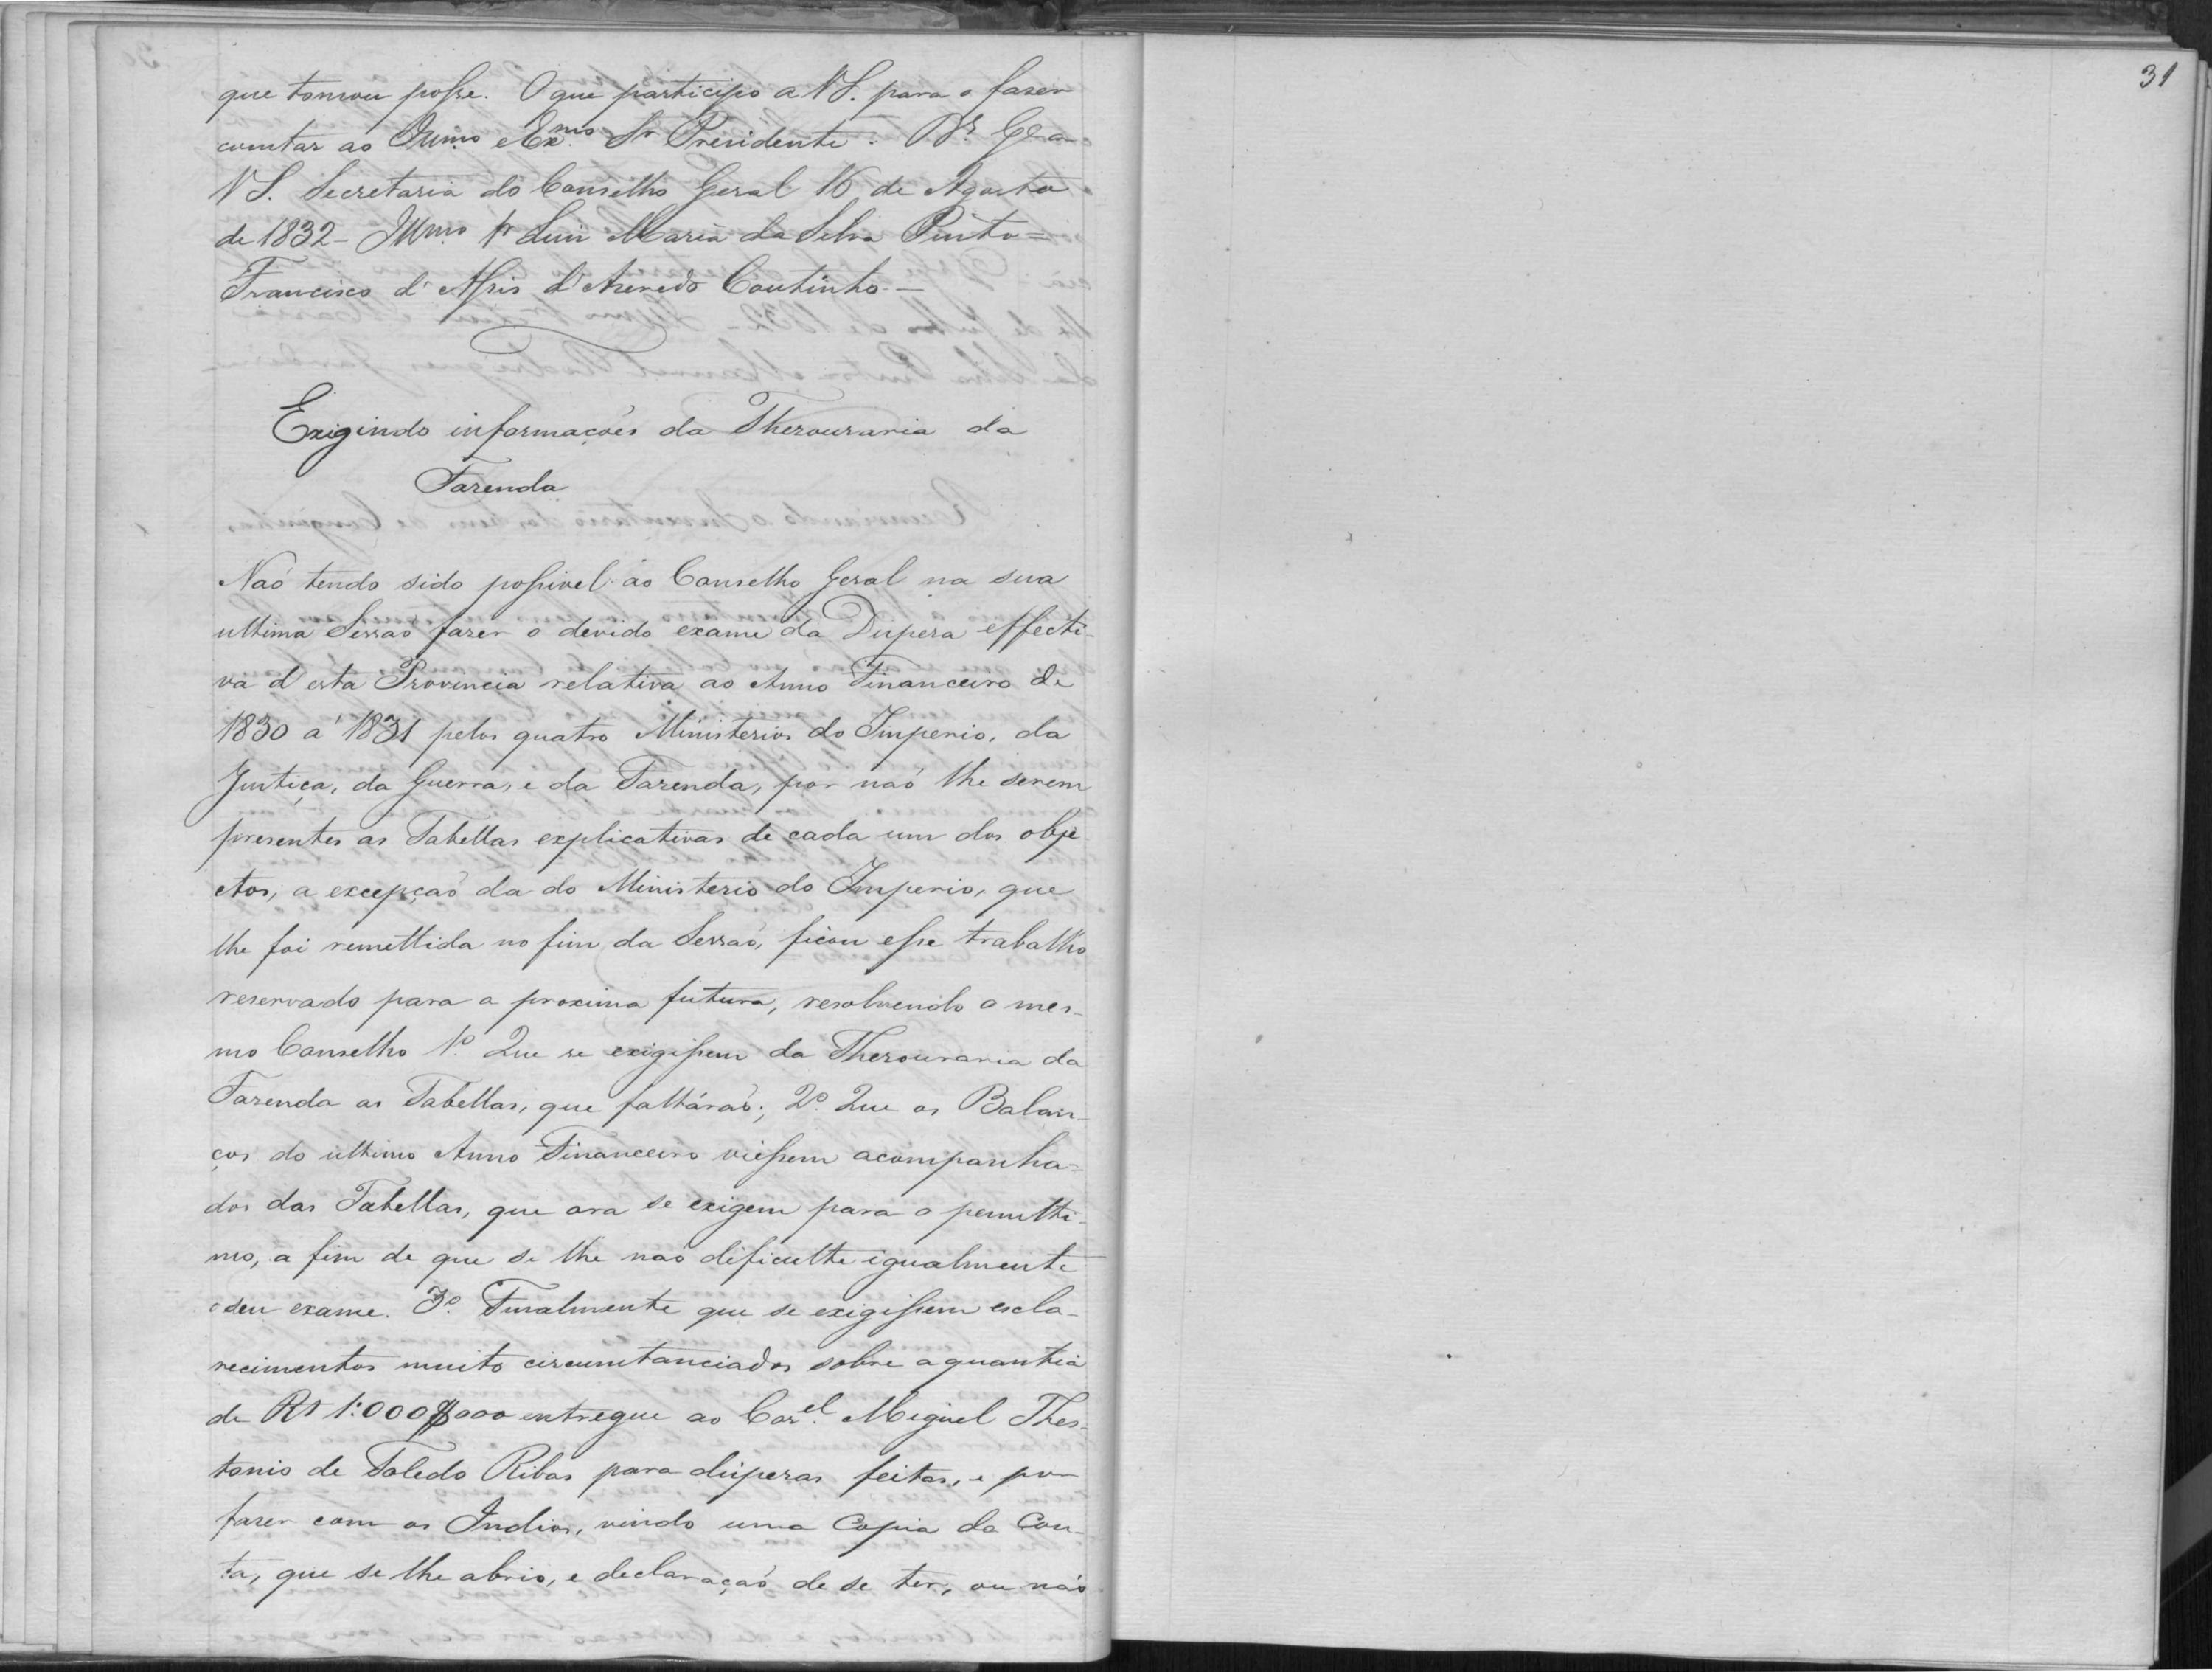 que tomou posse. O que participo a VS. para o fazer
constar ao Illmo e Exmo Sr Presidente. Ds Gde a
VS. Secretaria do Conselho Geral 16 de Agosto
de 1832 - Illmo Sr Luiz Maria da Silva Pinto =
Francisco d'Assis d'Azeredo Coutinho -
Exigindo informações da Thezouraria da
Fazenda
Naõ tendo sido possivel ao Conselho Geral na sua
ultima Sessaõ fazer o devido exame da Dispeza effecti-
va d'esta Provincia relativa ao Anno Financeiro de
1830 a 1831 pelos quatro Ministerios do Imperio, da
Justiça, da Guerra, e da Fazenda, por naõ lhe serem
presentes as Tabellas explicativas de cada um dos obje
ctos, a excepçaõ da do Ministerio do Imperio, que
lhe foi remettida no fim da Sessaõ, ficou esse trabalho
reservado para a proxima futura, resolvendo o mes-
mo Conselho 1º Que se exigissem da Thezouraria da
Fazenda as Tabellas, que faltáraõ; 2º Que os Balan-
ços do ultimo Anno Financeiro viessem acompanha-
dos das Tabellas, que ora se exigem para o penulti-
mo, a fim de que se lhe naõ dificulte igualmente
o seu exame. 3º Finalmente que se exigissem escla-
recimentos muito circumstanciados sobre a quantia
de Rs 1:000$000 entregue ao Corel Miguel Theo-
tonio de Toledo Ribas para dispezas feitas, e por
fazer com os Indios, vindo uma Copia da Con-
ta, que se lhe abrio, e declaraçaõ de se ter, ou naõ
31